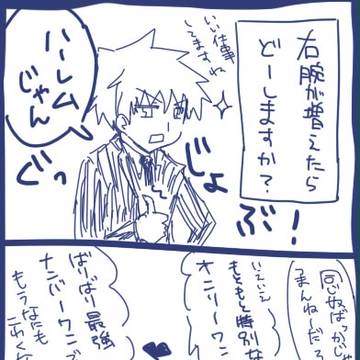 右腕が増えたら
どーしますか?
いい仕事
してますね
ハーレム
じゃん
ぐっ
じょ
ぶ!
同じ奴ばっかい
まんねーだろ
いえいえ
もともと特別な
オンリーワン
ばりばり最強
ナンバーワン
もうなにも
こわくな